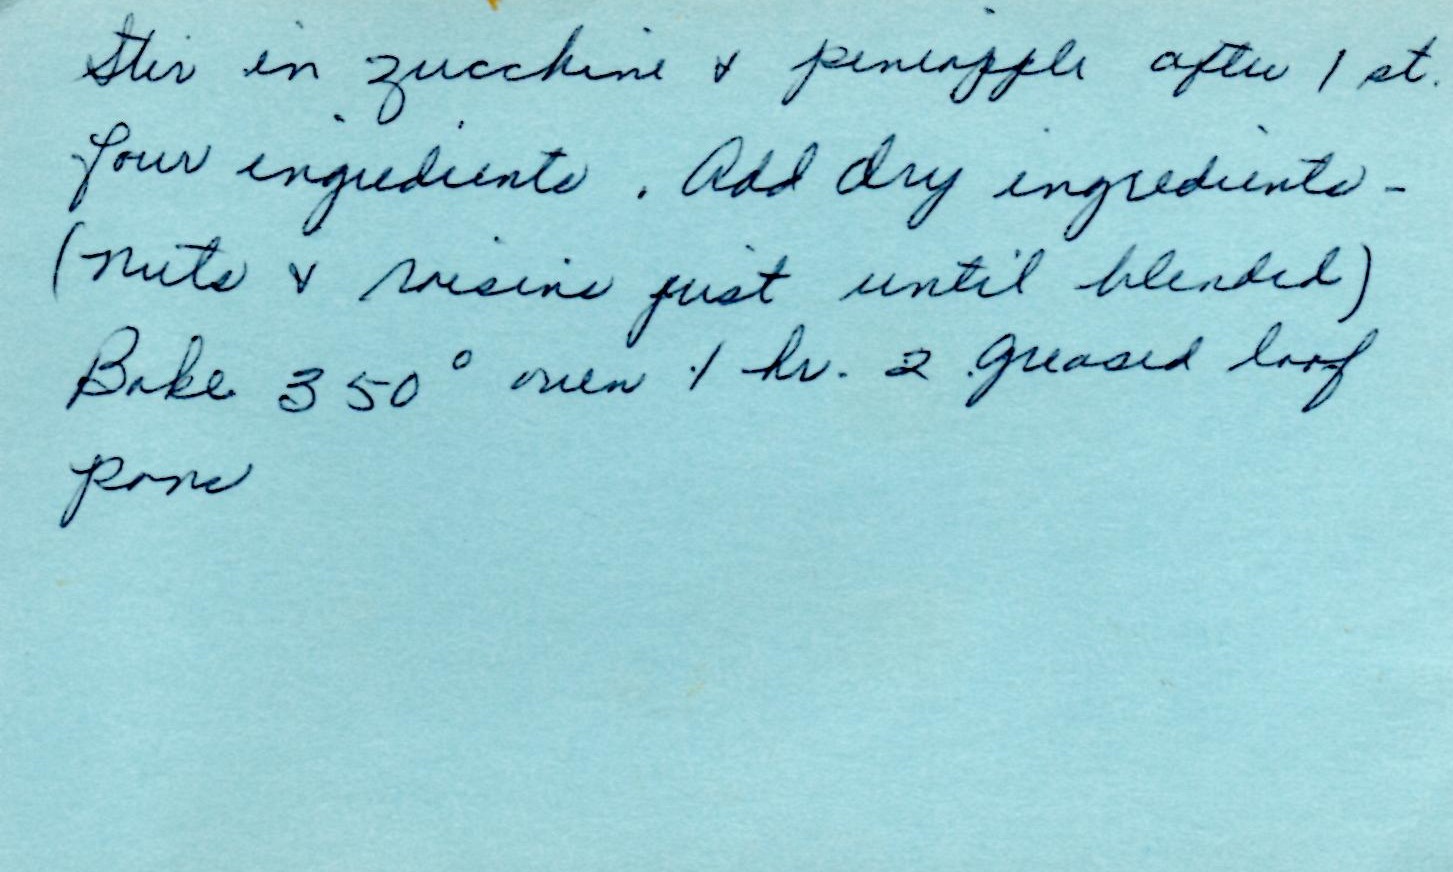 Stir in zucchini & pineapple after 1 st.
four ingredients. Add dry ingredients -
(nuts & raisins just until blended)
Bake 350° oven 1 hr. 2 greased loaf
pans